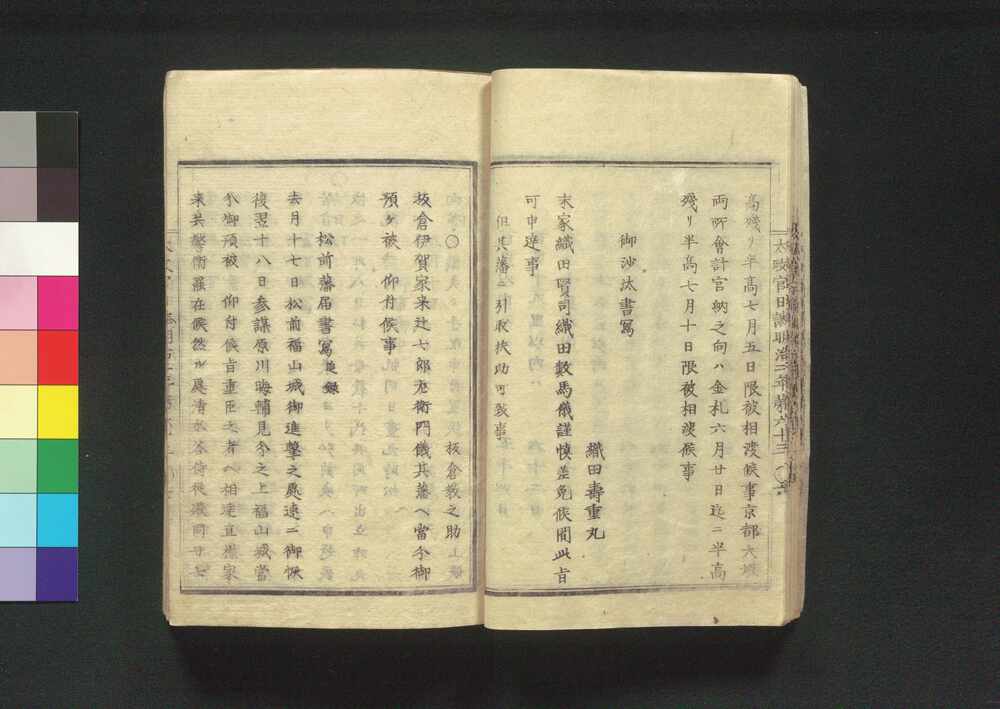 高殘リ半高七月五日限被相渡候事京都大坂
両所會計官納之向ハ金札六月廿日迄ニ半高
殘リ半高七月十日限被相渡候事
御沙汰書寫
織田壽重丸
末家織田賢司織田數馬儀謹慎差免候間此旨
可申達事
但其藩ヘ引取扶助可致事
太政官日誌明治二年第六十三
○
板倉教之助
板倉伊賀家来辻七郎左衛門儀其藩ヘ當分御
預ケ被 仰付候事
松前藩届書寫 追録
去月十七日松前福山城御進撃之處速ニ御恢
復翌十八日参謀原川時輔見分之上福山城當
分御預被 仰付候旨重臣之者ヘ相達直様家
来共警衛罷在候然ル處清水谷侍従殿同廿七